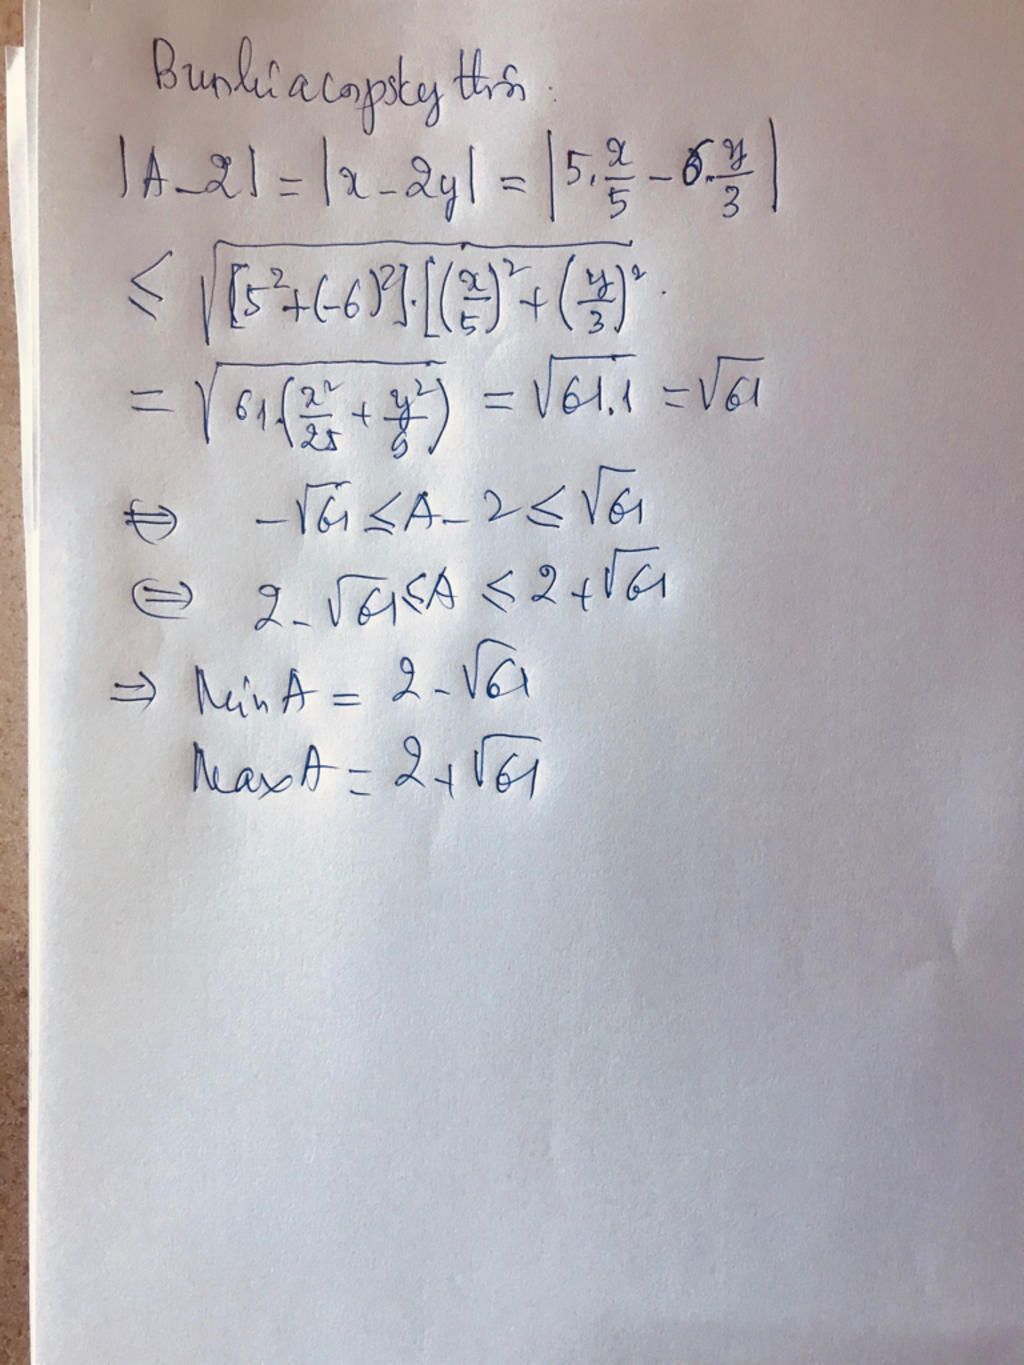 Bunhiacopsky thì:
|A - 2| = |x - 2y| = |5. x/5 - 6. y/3|
≤ √[5² + (-6)²].[(x/5)² + (y/3)²
= √61.(x²/25 + y²/9) = √61.1 = √61
⇔ -√61 ≤ A - 2 ≤ √61
⇔ 2 - √61 ≤ A ≤ 2 + √61
⇒ Min A = 2 - √61
Max A = 2 + √61